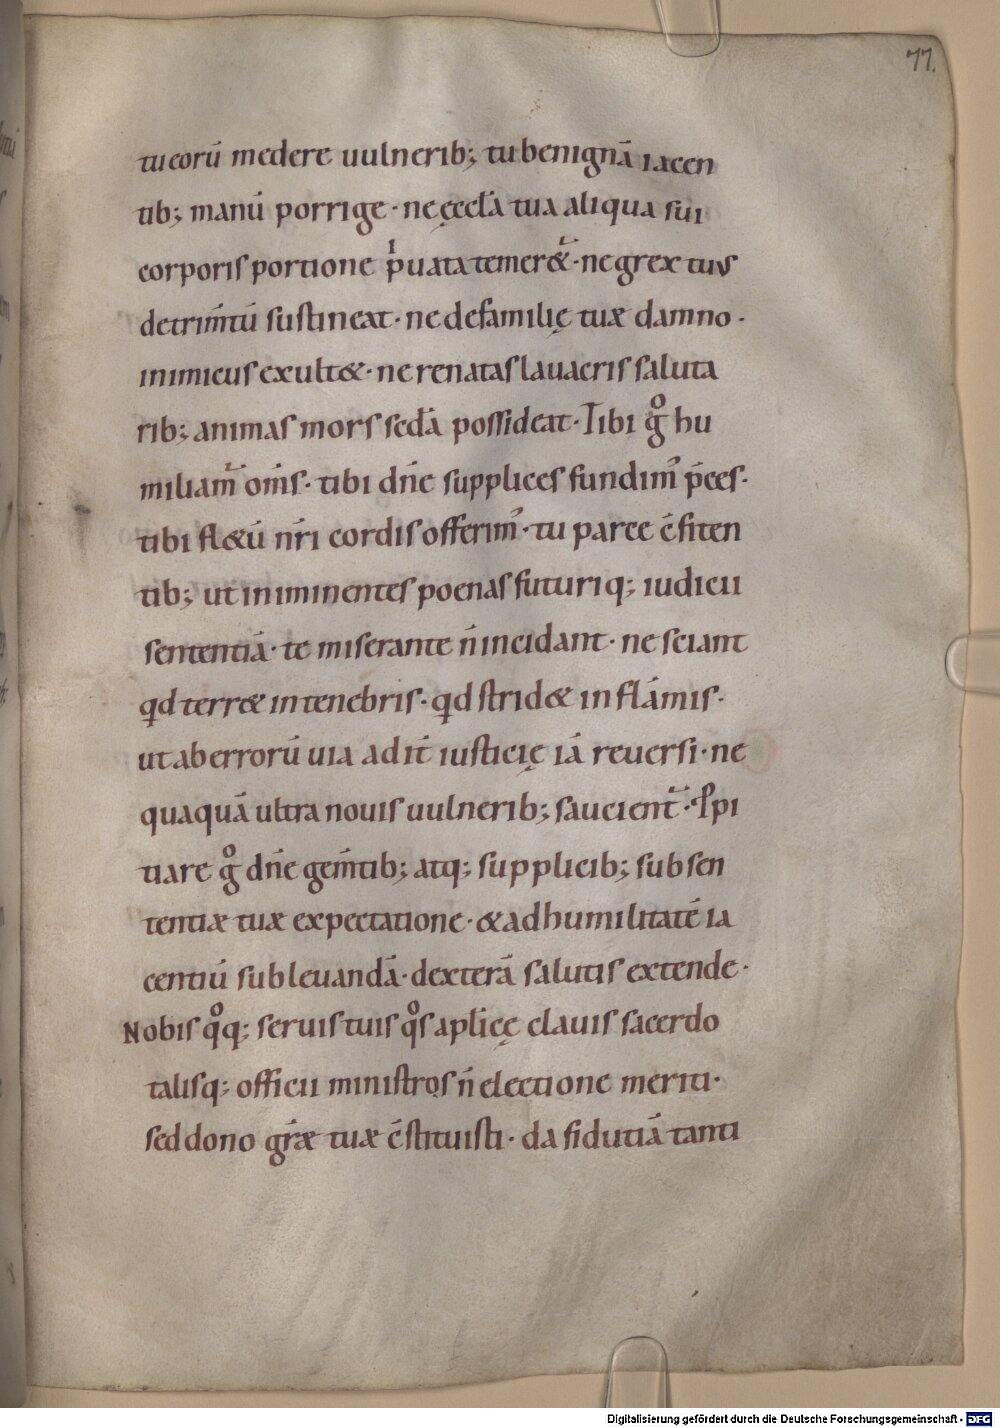 77.
tu eorū medere uulnerib; tu benignā iacen
tib; manū porrige · ne ęccła tua aliqua sui
corporis portione pͥuata temer&᷑ · ne grex tuus
detrim̄tū sustineat · ne de familię tuæ damno ·
inimicus exult& · ne renatas lauacris saluta
rib; animas mors sec̄da possideat · Tibi gͦ hu
miliam᷑ om̄s · tibi dn̄e supplices fundim᾽ p̄ces ·
tibi fl&ū nr̄i cordis offerim᾽ · tu parce c̄fiten
tib; ut in iminentes poenas futuriq; iudicii
sententiā · te miserante n̄ incidant · ne sciant
qd terr& in tenebris · qd strid& in flāmis ·
ut ab errorū uia ad it̄ iusticię iā reuersi · ne
quaquā ultra nouis uulnerib; saucient᷑ · Ꝓpi
tiare gͦ dn̄e gem̄tib; atq; supplicib; sub sen
tentiæ tuæ expectatione · & ad humilitatē ia
centiū subleuandā · dexterā salutis extende ·
Nobis qͦq; seruis tuis qͦs aplicę clauis sacerdo
talisq; officii ministros n̄ electione meriti ·
sed dono gr̄æ tuæ c̄stituisti · da fidutiā tanti
Digitalisierung gefördert durch die Deutsche Forschungsgemeinschaft - DFG